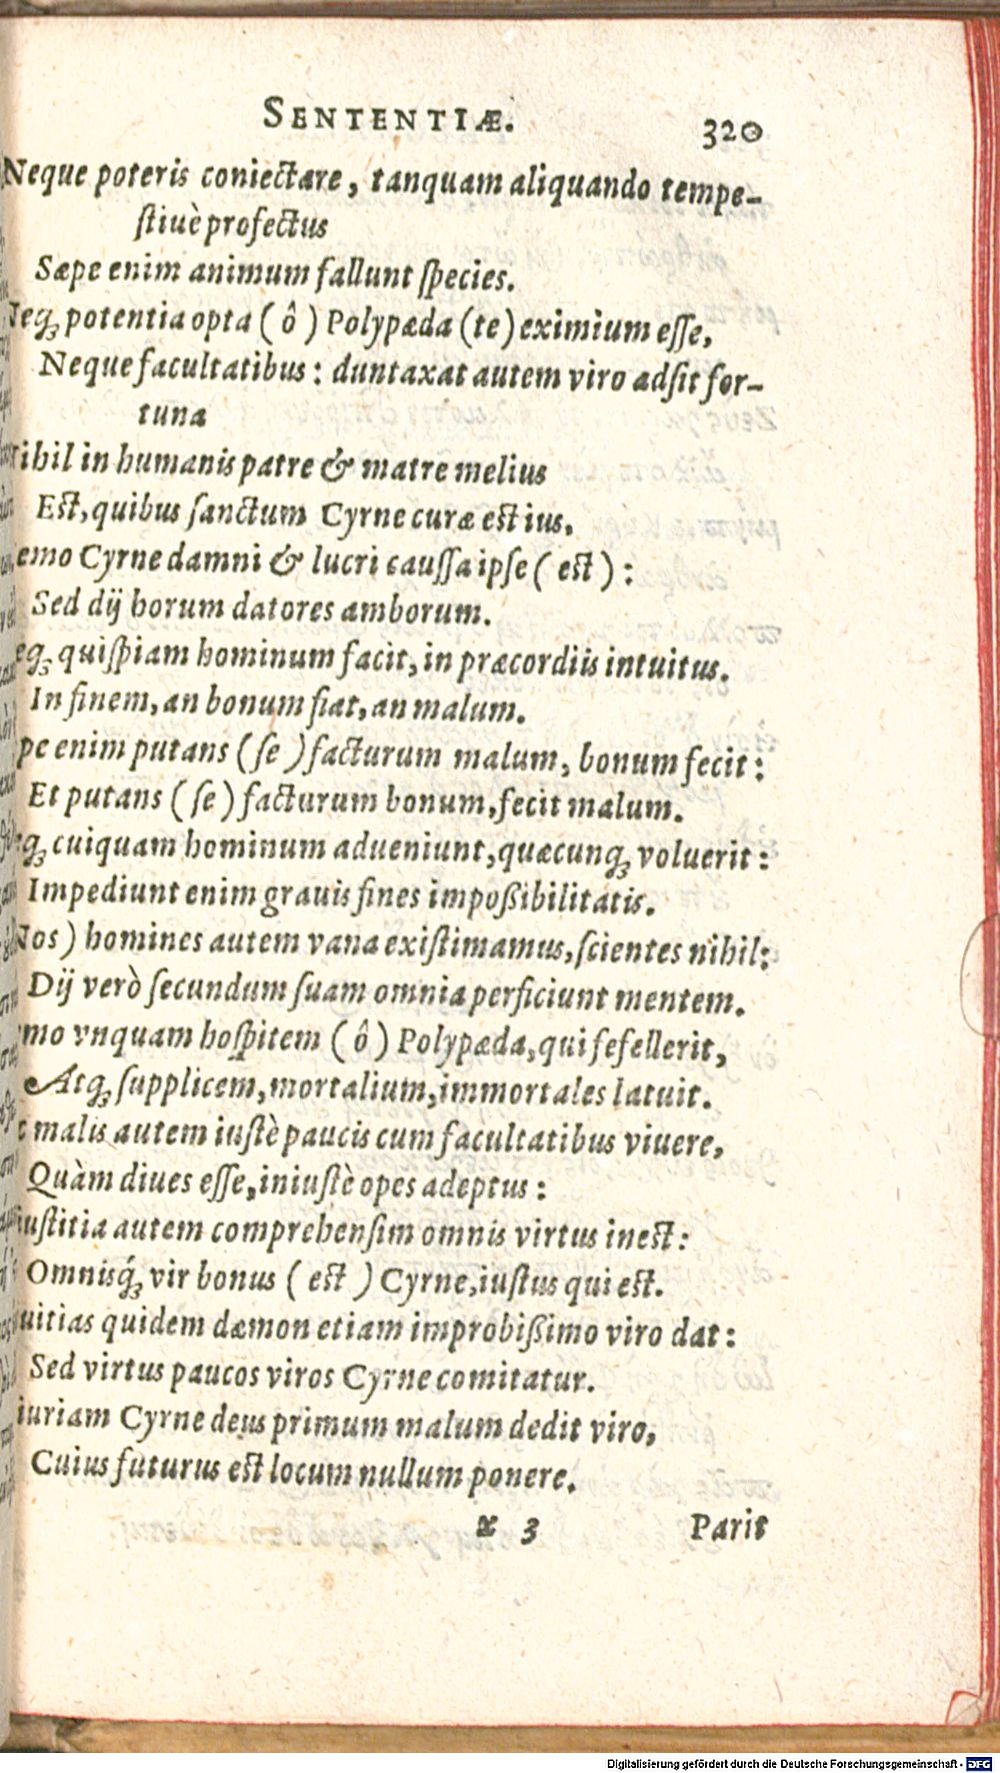 SENTENTIÆ. 320
Neque poteris coniectare, tanquam aliquando tempe-
ſtiuè profectus
Sæpe enim animum fallunt ſpecies.
Neqꝫ potentia opta ( ô ) Polypæda (te) eximium eſſe,
Neque facultatibus: duntaxat autem viro adſit for-
tuna
ihil in humanis patre & matre melius
Eſt, quibus ſanctum Cyrne curæ eſt ius.
emo Cyrne damni & lucri cauſſa ipſe ( eſt ) :
Sed dij horum datores amborum.
eqꝫ quiſpiam hominum facit, in præcordiis intuitus.
In finem, an bonum fiat, an malum.
pe enim putans (ſe ) facturum malum, bonum fecit :
Et putans (ſe) facturum bonum, fecit malum.
qꝫ cuiquam hominum adueniunt, quæcunqꝫ voluerit :
Impediunt enim grauis fines impoßibilitatis.
Nos) homines autem vana exiſtimamus, ſcientes nihil:
Dij verò ſecundum ſuam omnia perficiunt mentem.
mo vnquam hoſpitem ( ô ) Polypæda, qui fefellerit,
Atqꝫ ſupplicem, mortalium, immortales latuit.
malis autem iuſtè paucis cum facultatibus viuere,
Quàm diues eſſe, iniuſtè opes adeptus :
iuſtitia autem comprehenſim omnis virtus ineſt:
Omnisqꝫ́ vir bonus ( eſt ) Cyrne, iuſtus qui eſt.
uitias quidem dæmon etiam improbißimo viro dat :
Sed virtus paucos viros Cyrne comitatur.
iuriam Cyrne deus primum malum dedit viro,
Cuius futurus eſt locum nullum ponere.
3 Parit
Digitalisierung gefördert durch die Deutsche Forschungsgemeinschaft - DFG